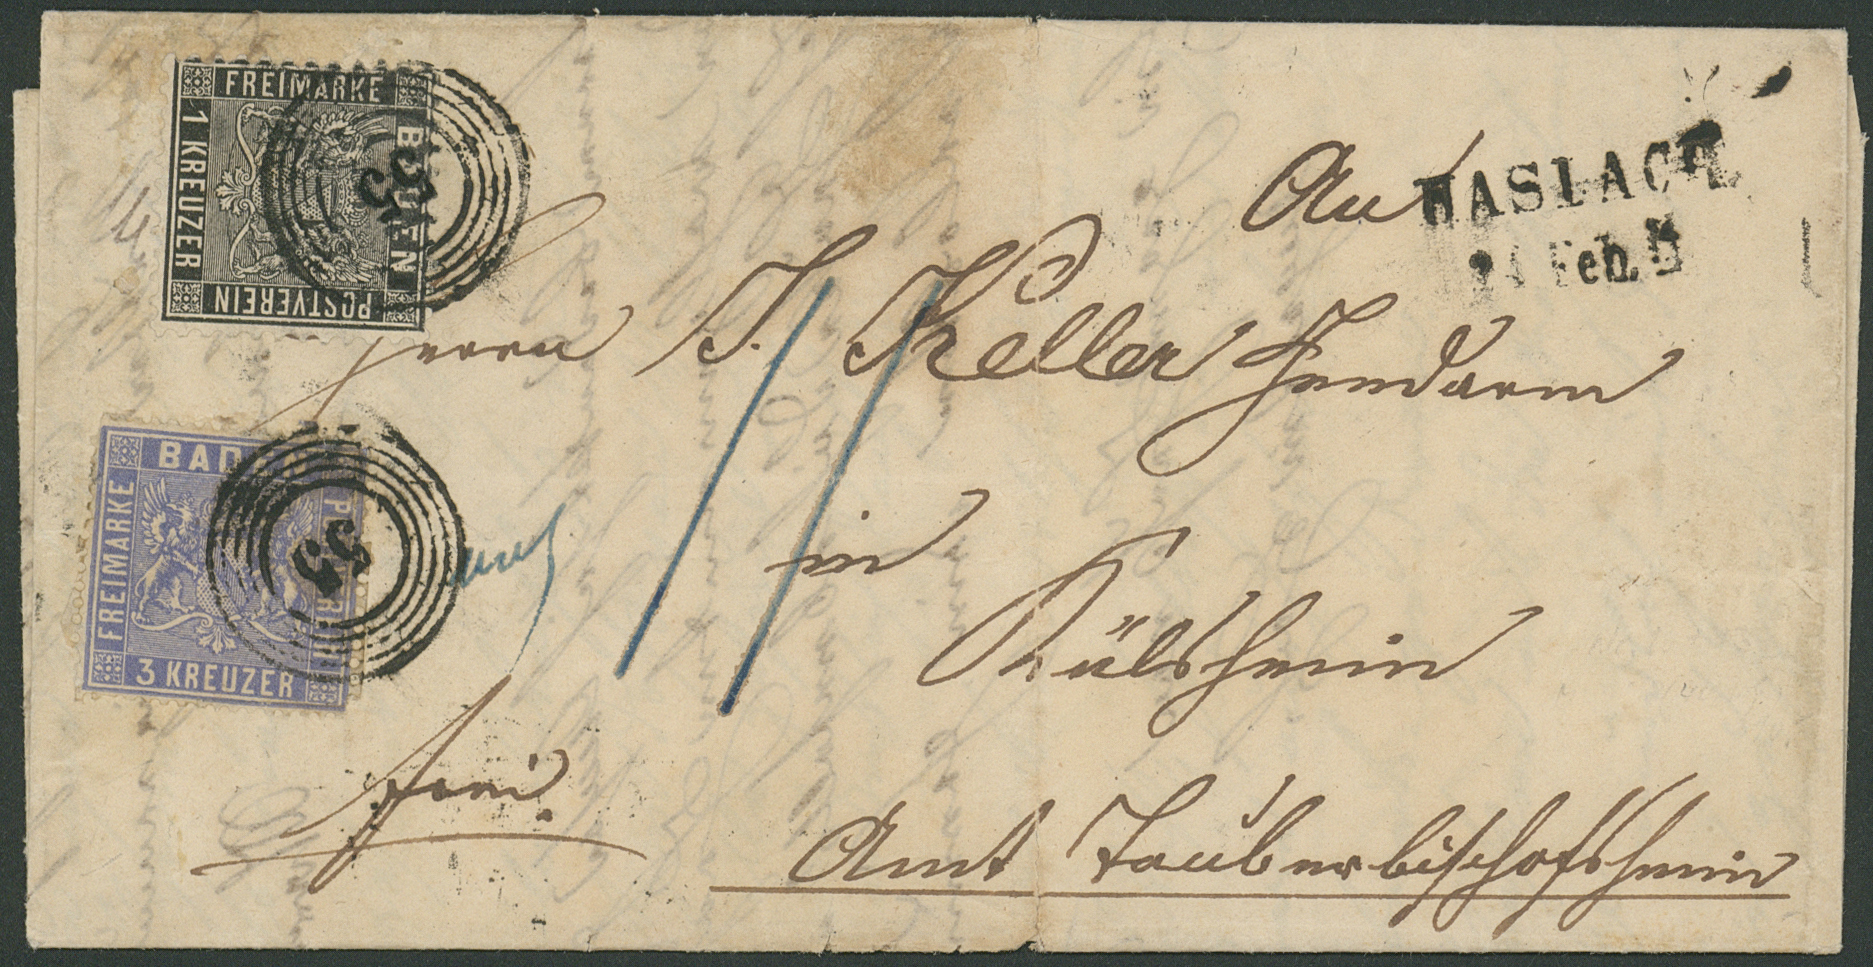 FREIMARKE
BADEN
POSTVEREIN
1 KREUZER
55
HASLACH
Feb.
An
Herrn J. Keller Gendarm
in
Külsheim
Amt Tauberbischofsheim
BADEN
FREIMARKE
POSTVEREIN
3 KREUZER
55
frei